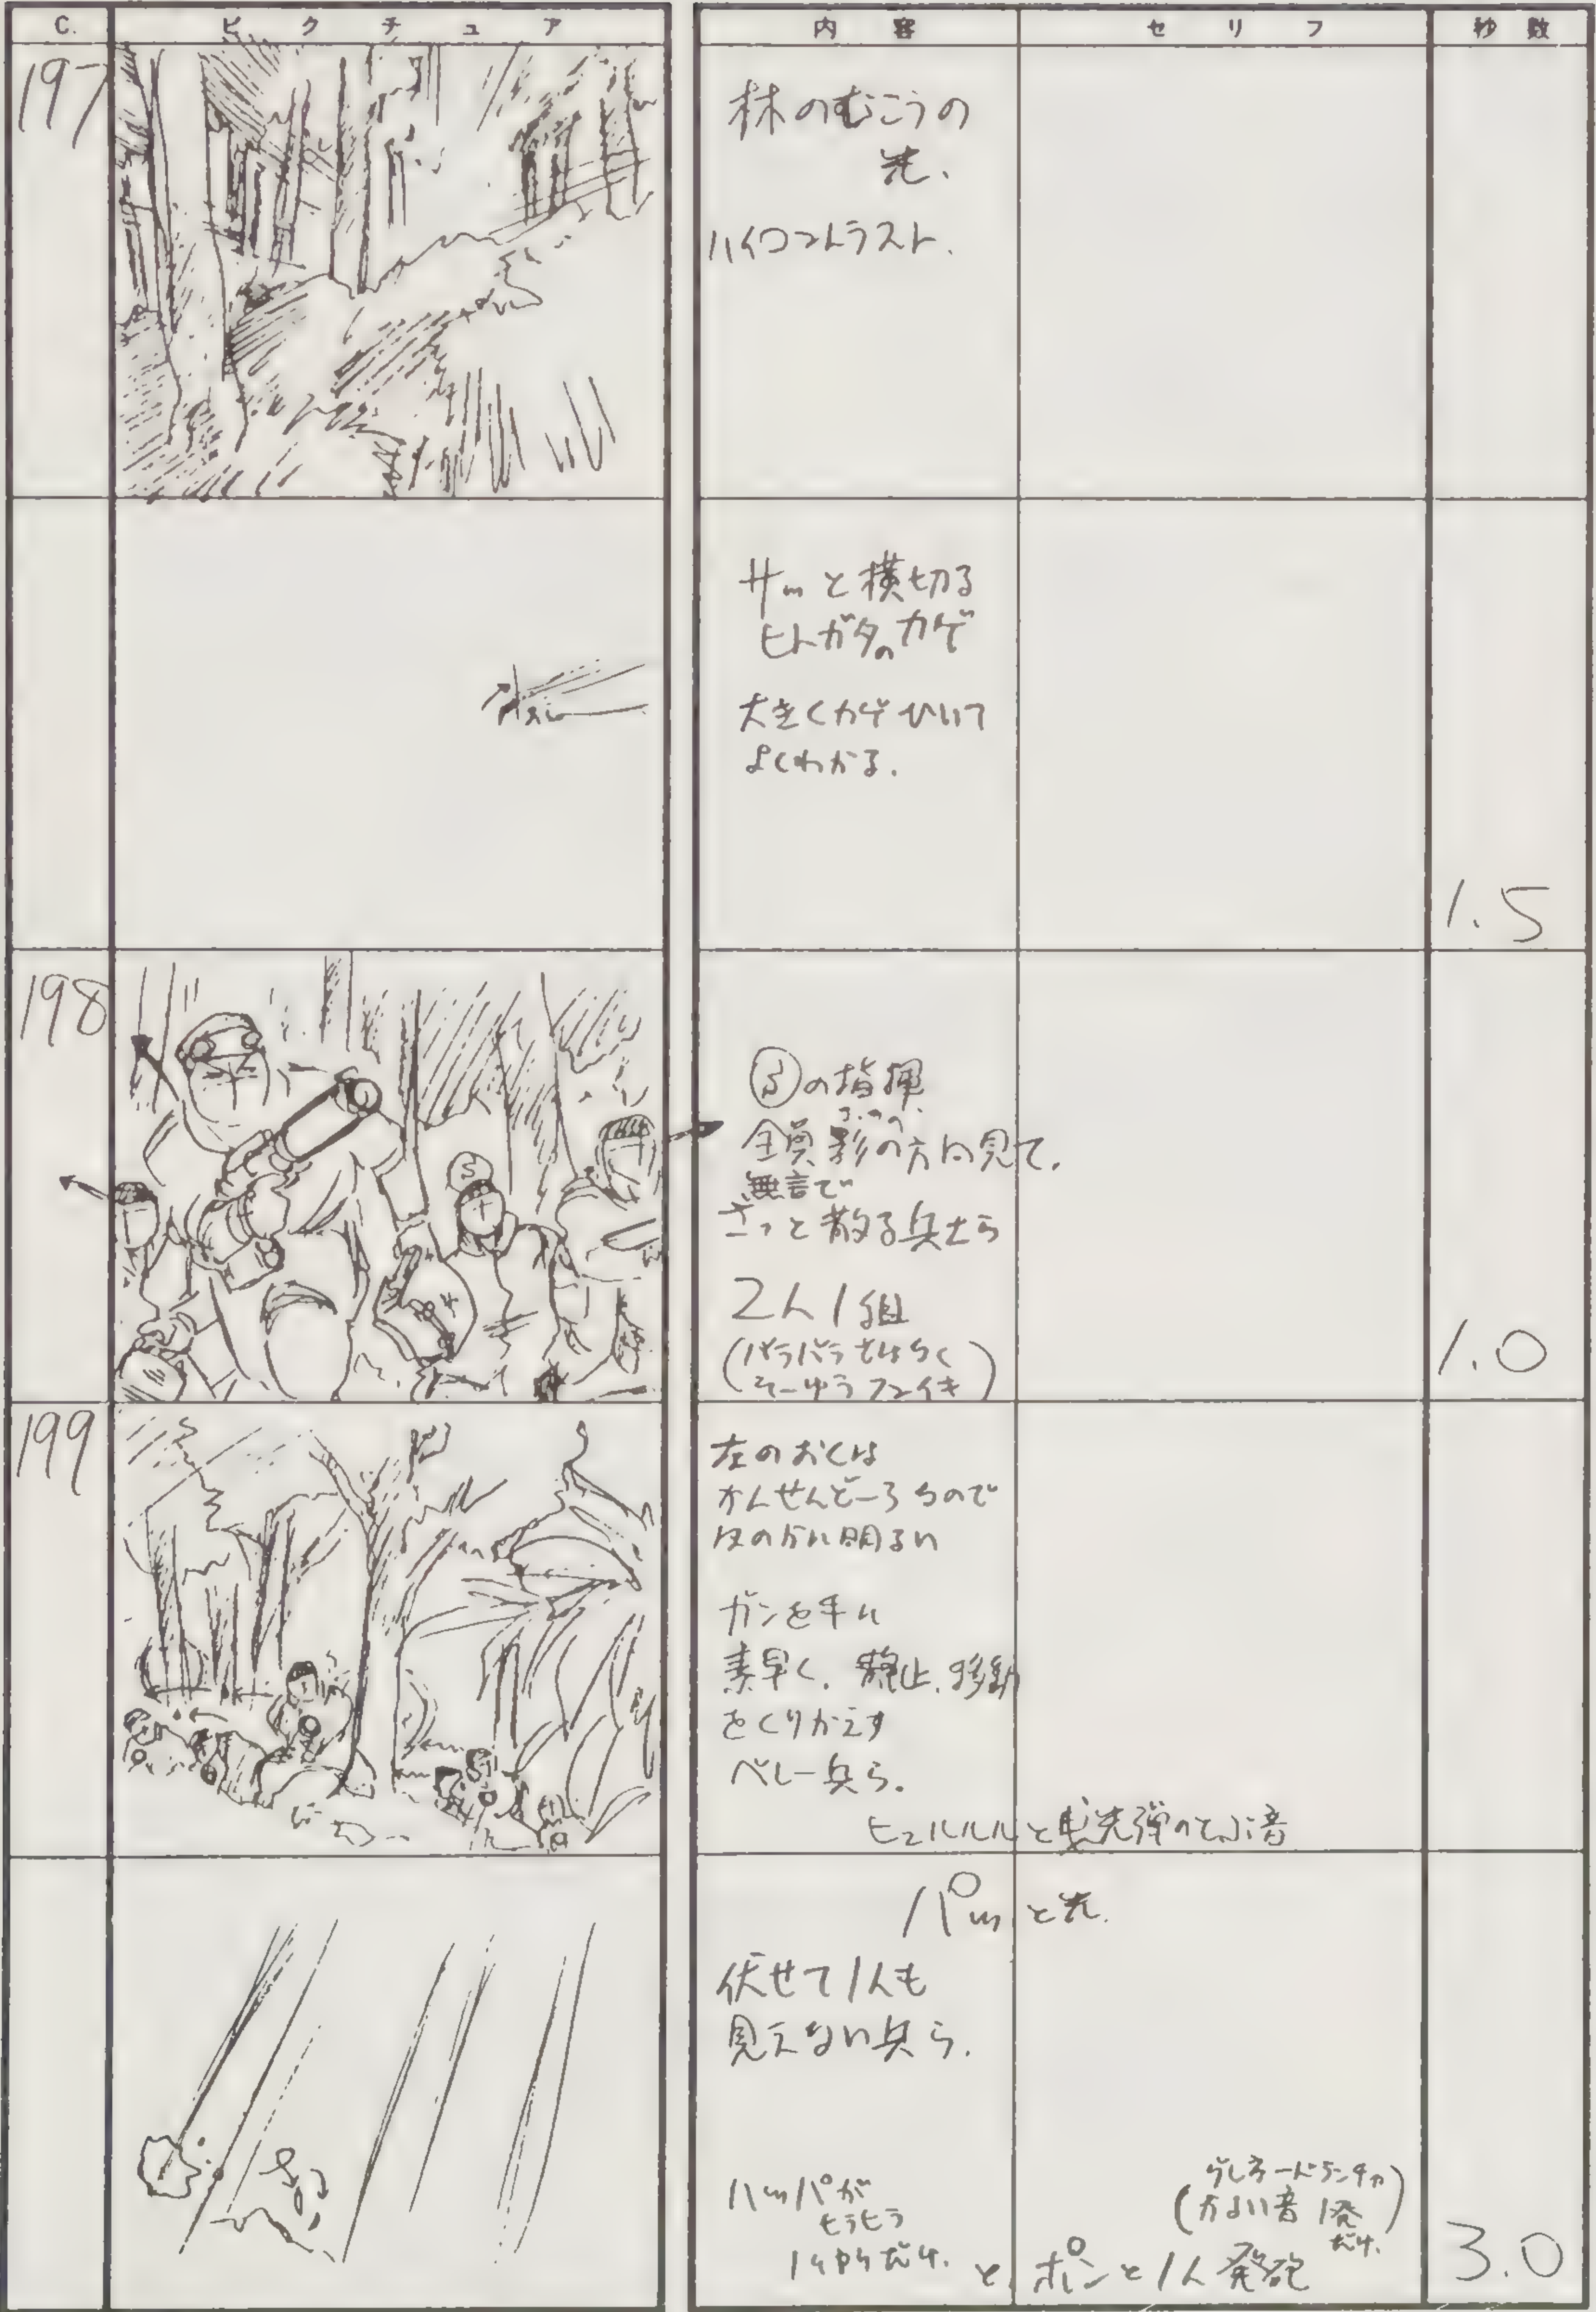 C. ピクチュア 内容 セリフ 秒数
197
林のむこうの
光.
ハイコントラスト.
サッと横切る
ヒトガタのカゲ
大きくカゲひいて
よくわかる.
1.5
198
Ⓢの指揮
全員影の方向見て.
無言で
ざっと散る兵士ら
2人1組
(バラバラではなく
そーゆうフンイキ)
S
1.0
199
左のおくは
かんせんどーろなので
ほのかに明るい
ガンを手に
素早く.静止.移動
をくりかえす
ベレー兵ら.
ヒュルルルと曳光弾のとぶ音
パッと光.
伏せて1人も
見えない兵ら.
ハッパが
ヒラヒラ
と ポンと1人発砲
(グレネードランチャ
かるい音 1発
だけ.)
3.0